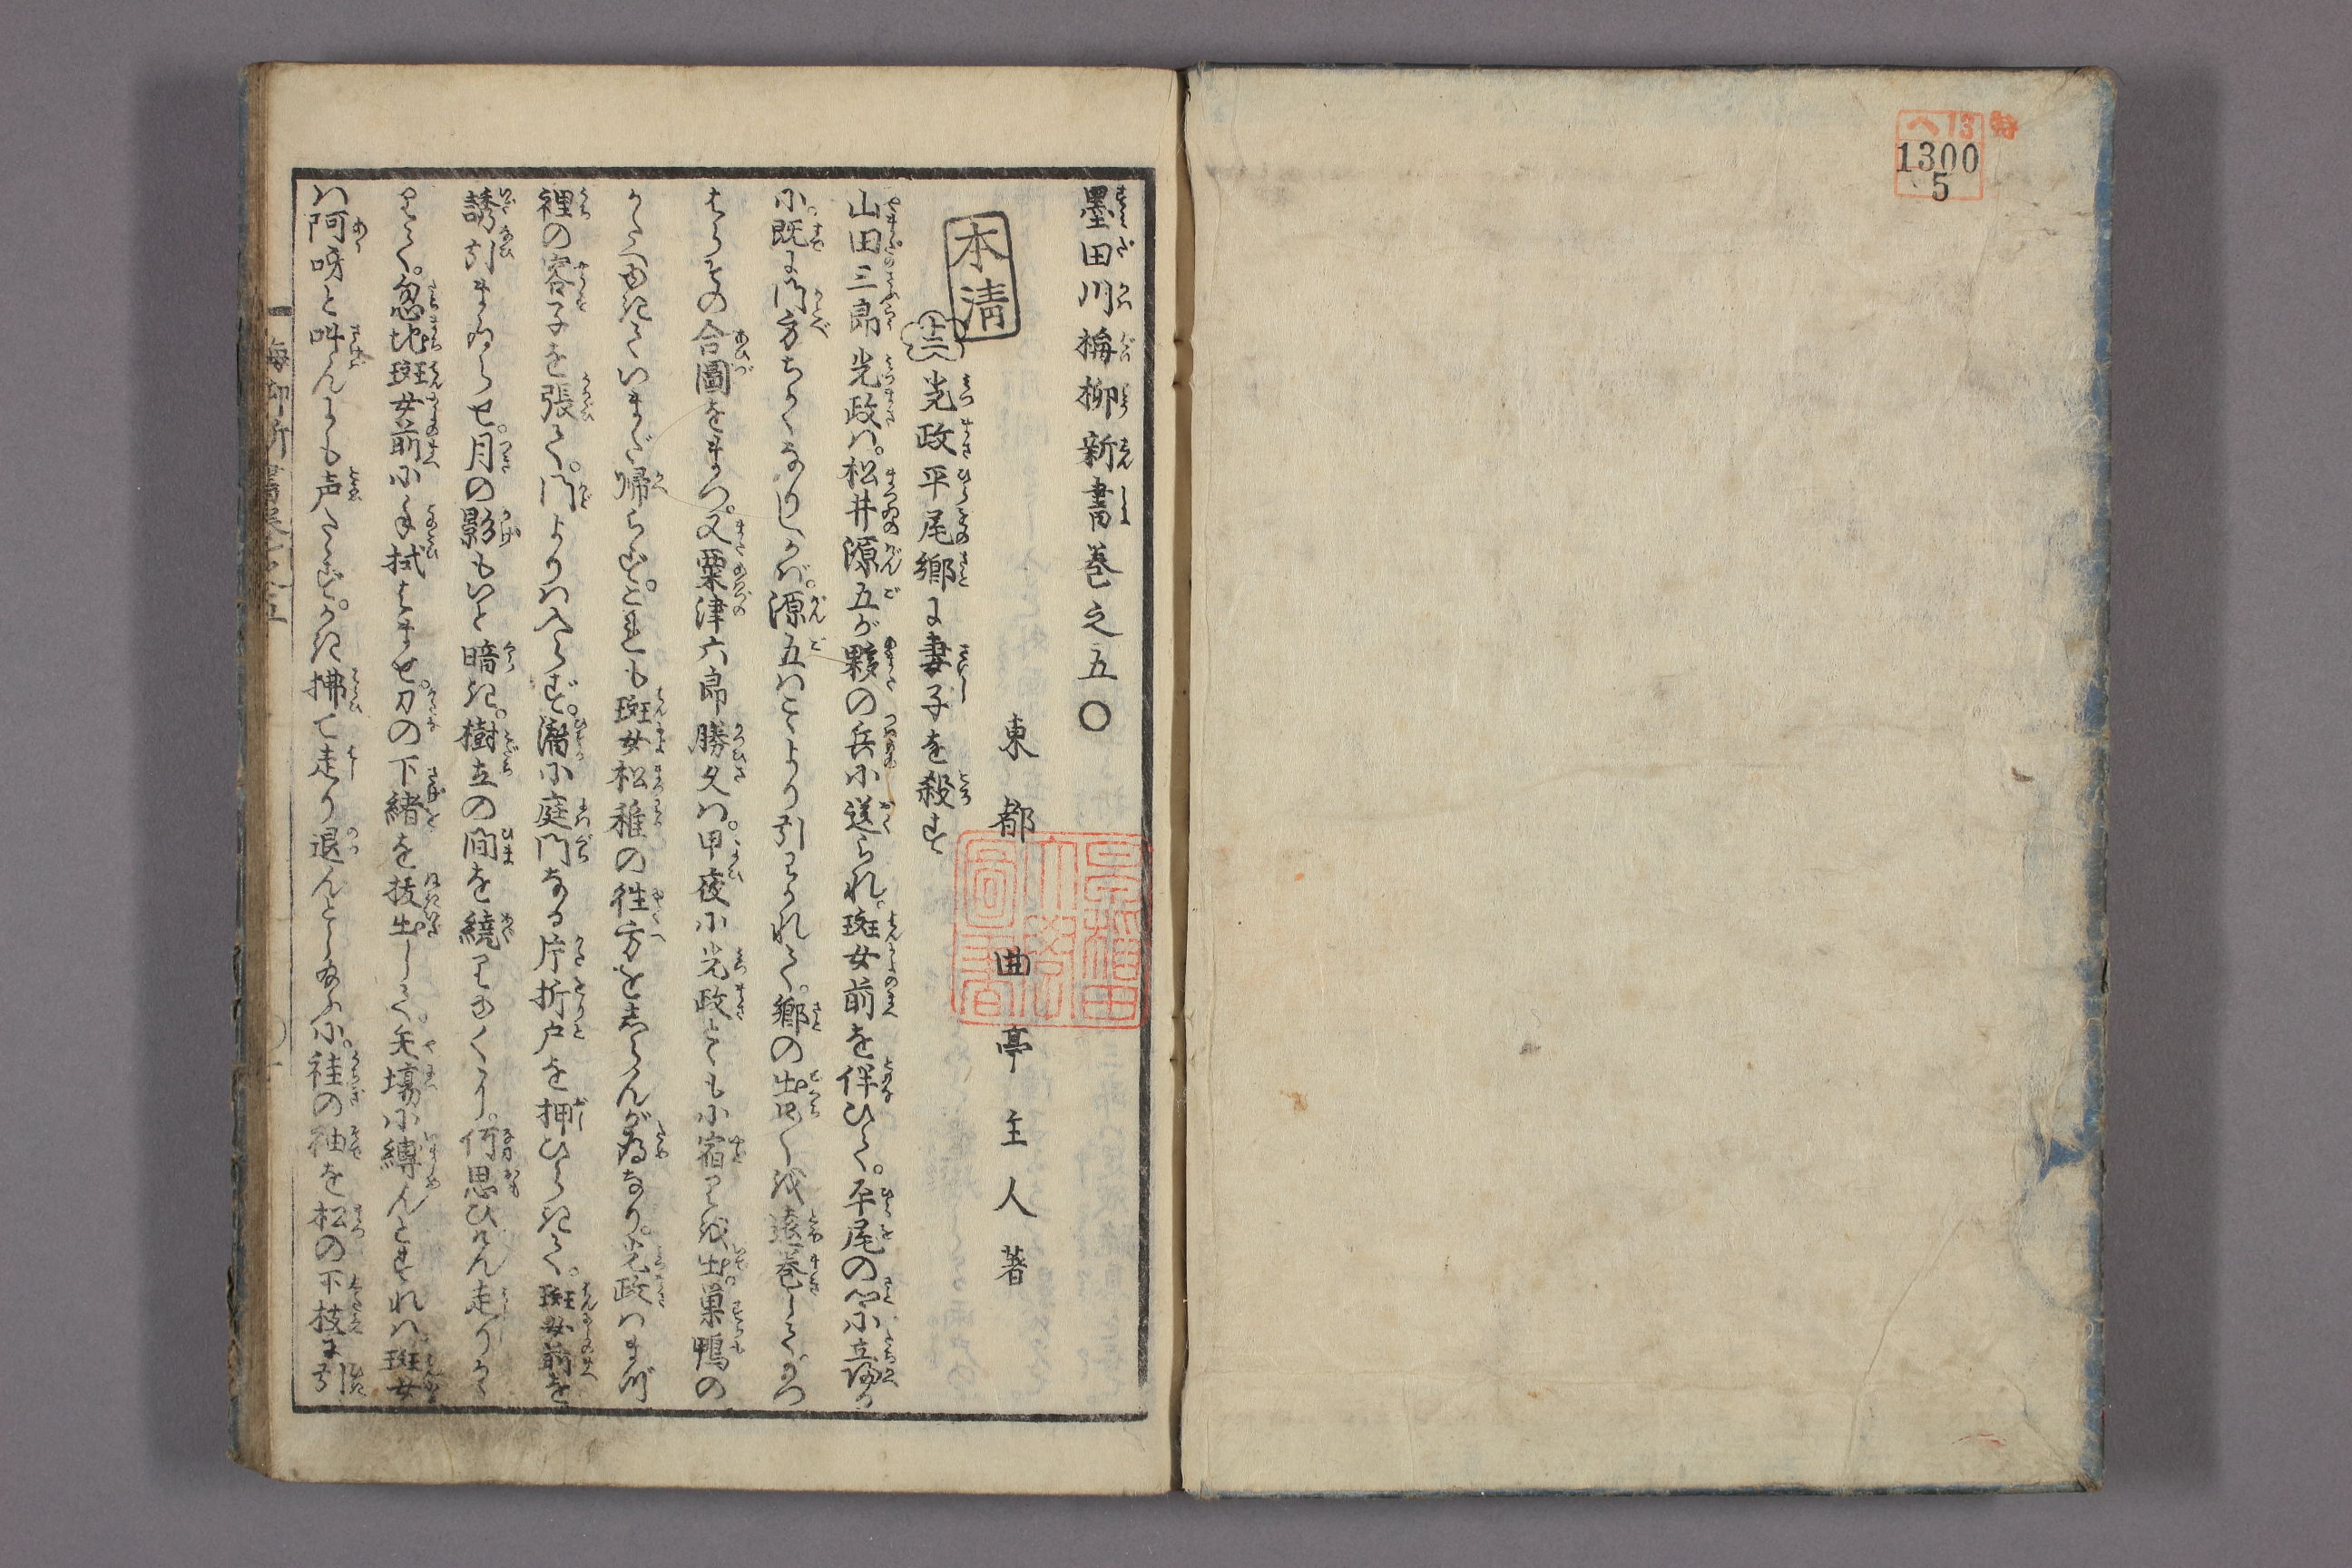 特
ヘ13
1300
5
墨田川梅柳新書巻之五〇
東都 曲亭主人著
早稲田大学図書
本清
十二 光政平尾郷に妻子を殺す
山田三郎光政ハ。松井源五が夥の兵に送られ。斑女前を伴ひて。平尾の郷に立帰る
に。既に門方ちかくなりしかバ。源五ハこゝより引わかれて。郷の出口〳〵を遠巻してかつ
はらその合圖をまつ。又粟津六郎勝久ハ。甲夜に光政とゝもに宿りを出。巣鴨の
かたへゆきていまだ帰らず。これも斑女松稚の往方をしらんが為なり。光政ハまづ
裡の容子を張て。門よりハ入らず。潜に庭門なる片折戸を押ひらきて。斑女前を
誘引まゐらせ。月の影もいと暗き。樹立の間を繞りゆくくり。何思ひけん走りかゝ
りて。忽地斑女前に手拭をはませ。刀の下緒を抜出して。矢塲に縛んとすれハ斑女
ハ阿呀と叫んにも声たゝず。かき拂て走り退んとし給ふに。袿の袖を松の下枝に引
梅柳新書巻之五